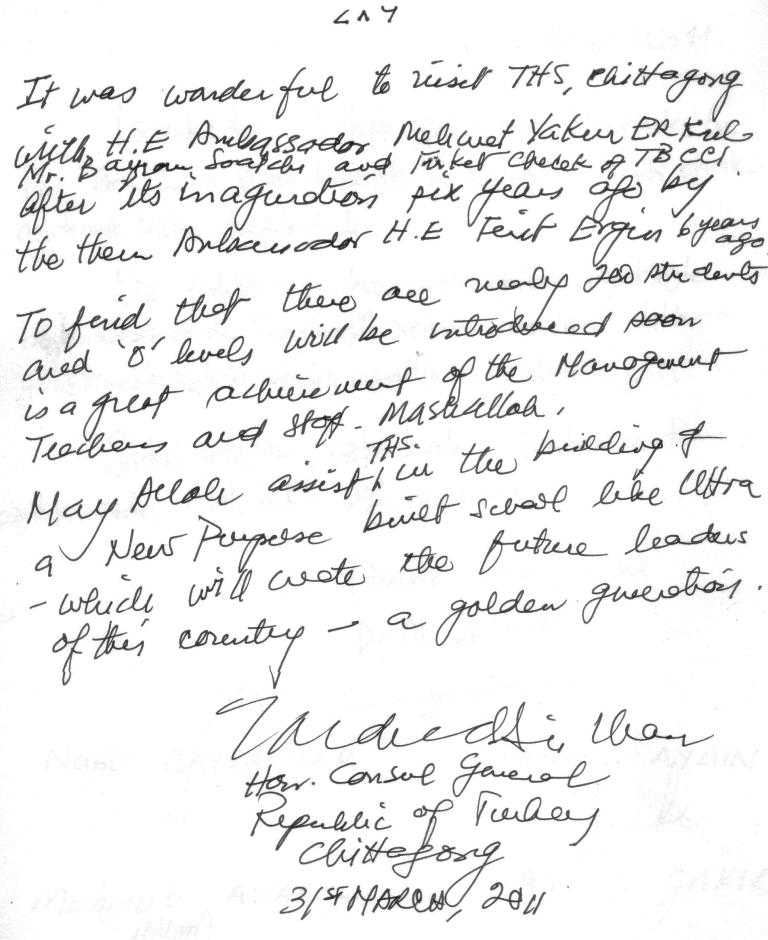 It was wonderful to visit THS, Chittagong
with H.E Ambassador Mehmet Yakur ERKul
Mr. Bayram and of TBCCI
after its inaguration six years ago by
the then Ambassador H.E Ferit Ergin 6 years ago
To find that there are nearly 200 students
and 'O' levels will be introduced soon
is a great achievement of the Management
Teachers and Staff. Mashallah.
May Allah assist THS. in the building of
a New Purpose built school like Uttra
- which will create the future leaders
of this country - a golden generation.
Hon. Consul General
Republic of Turkey
Chittagong
31ST MARCH, 2011